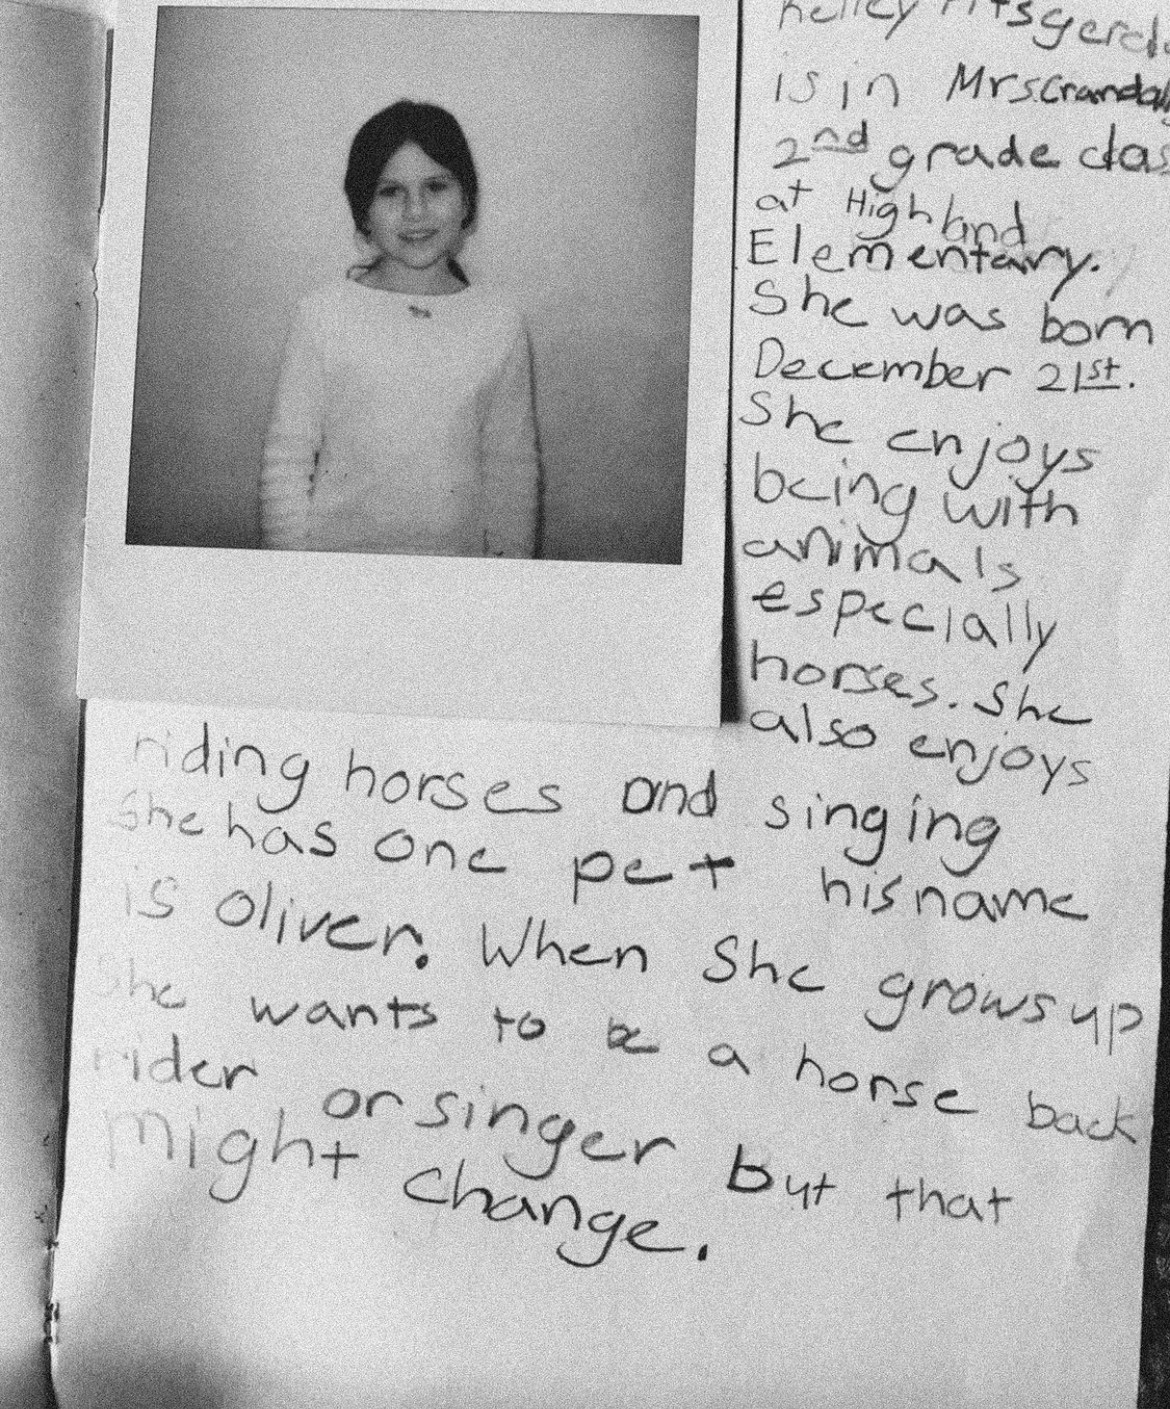 Kelley Fitsgerald
is in Mrs Crandalls
2nd grade class
at Highland
Elementary.
She was born
December 21st.
She enjoys
being with
animals
especially
horses. She
also enjoys
riding horses and singing
She has one pet his name
is oliver. When She grows up
She wants to be a horse back
rider or singer but that
might change.